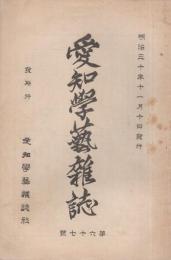 明治三十年十一月十四日發行
愛知學藝雜誌
第六十七號
發行所
愛知學藝雜誌社